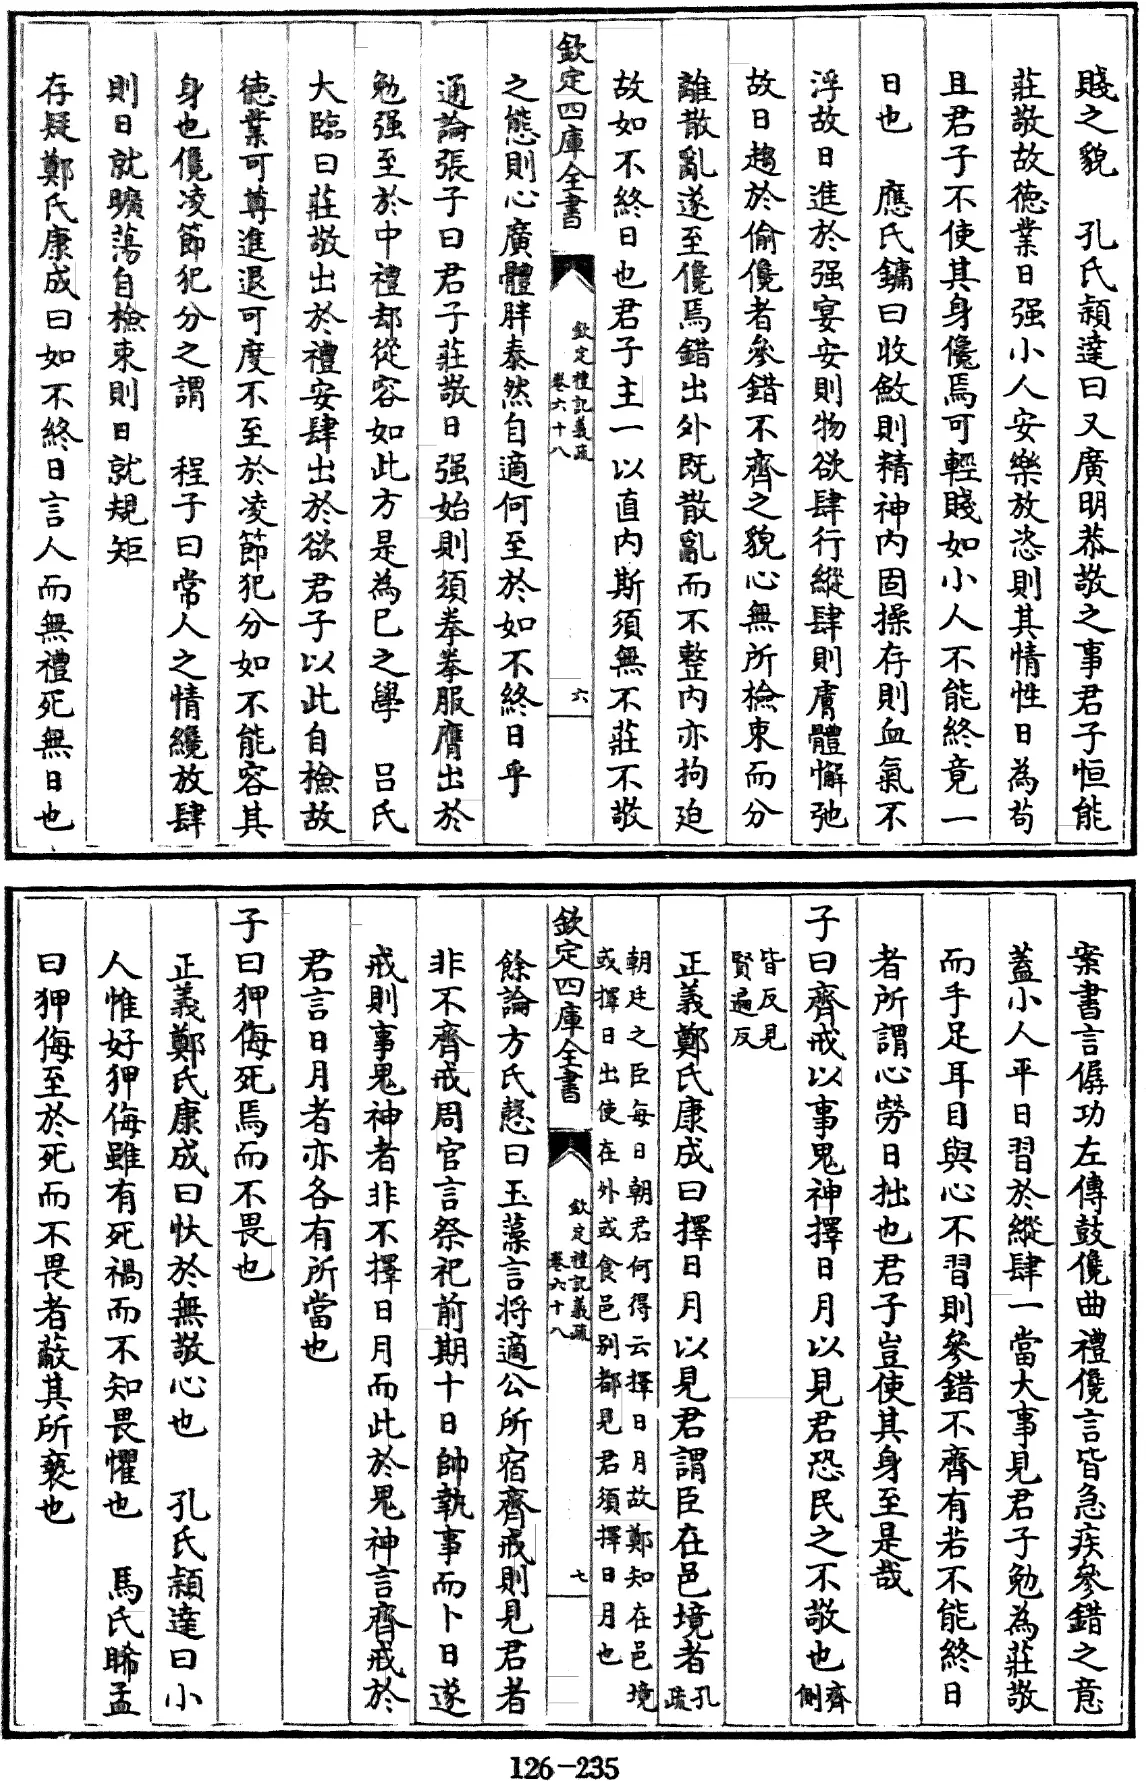 賤之貌　孔氏穎達曰又廣明恭敬之事君子恒能
莊敬故德業日强小人安樂放恣則其情性日為苟
且君子不使其身儳焉可輕賤如小人不能終竟一
日也　應氏鏞曰收斂則精神内固操存則血氣不
浮故日進於强宴安則物欲肆行縱肆則膚體懈弛
故日趨於偷儳者參錯不齊之貌心無所檢束而分
離散亂遂至儳焉錯出外既散亂而不整内亦拘迫
故如不終日也君子主一以直内斯須無不莊不敬
欽定四庫全書　欽定禮記義疏卷六十八　六
之態則心廣體胖泰然自適何至於如不終日乎
通論張子曰君子莊敬日强始則須拳拳服膺出於
勉强至於中禮却從容如此方是為已之學　呂氏
大臨曰莊敬出於禮安肆出於欲君子以此自檢故
德業可尊進退可度不至於凌節犯分如不能容其
身也儳凌節犯分之謂　程子曰常人之情纔放肆
則日就曠蕩自檢束則日就規矩
存疑鄭氏康成曰如不終日言人而無禮死無日也
案書言僝功左傳鼓儳曲禮儳言皆急疾參錯之意
蓋小人平日習於縱肆一當大事見君子勉為莊敬
而手足耳目與心不習則參錯不齊有若不能終日
者所謂心勞日拙也君子豈使其身至是哉
子曰齊戒以事鬼神擇日月以見君恐民之不敬也齊側
皆反見賢遍反
正義鄭氏康成曰擇日月以見君謂臣在邑境者孔疏
朝廷之臣每日朝君何得云擇日月故鄭知在邑境
或擇日出使在外或食邑别都見君須擇日月也
欽定四庫全書　欽定禮記義疏卷六十八　七
餘論方氏慤曰玉藻言將適公所宿齊戒則見君者
非不齊戒周官言祭祀前期十日帥執事而卜日遂
戒則事鬼神者非不擇日月而此於鬼神言齊戒於
君言日月者亦各有所當也
子曰狎侮死焉而不畏也
正義鄭氏康成曰忕於無敬心也　孔氏穎達曰小
人惟好狎侮雖有死禍而不知畏懼也　馬氏睎孟
曰狎侮至於死而不畏者蔽其所褻也
126-235